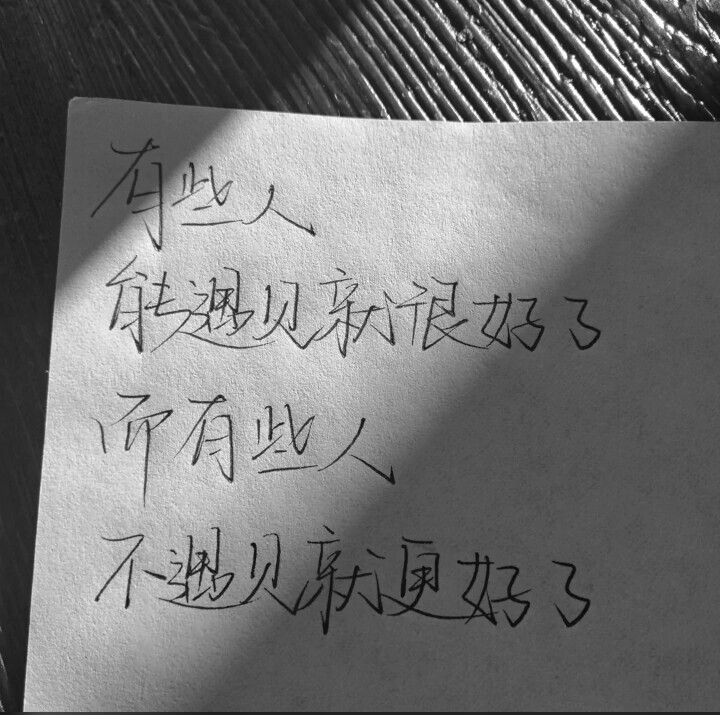 有些人
能遇见就很好了
而有些人
不遇见就更好了